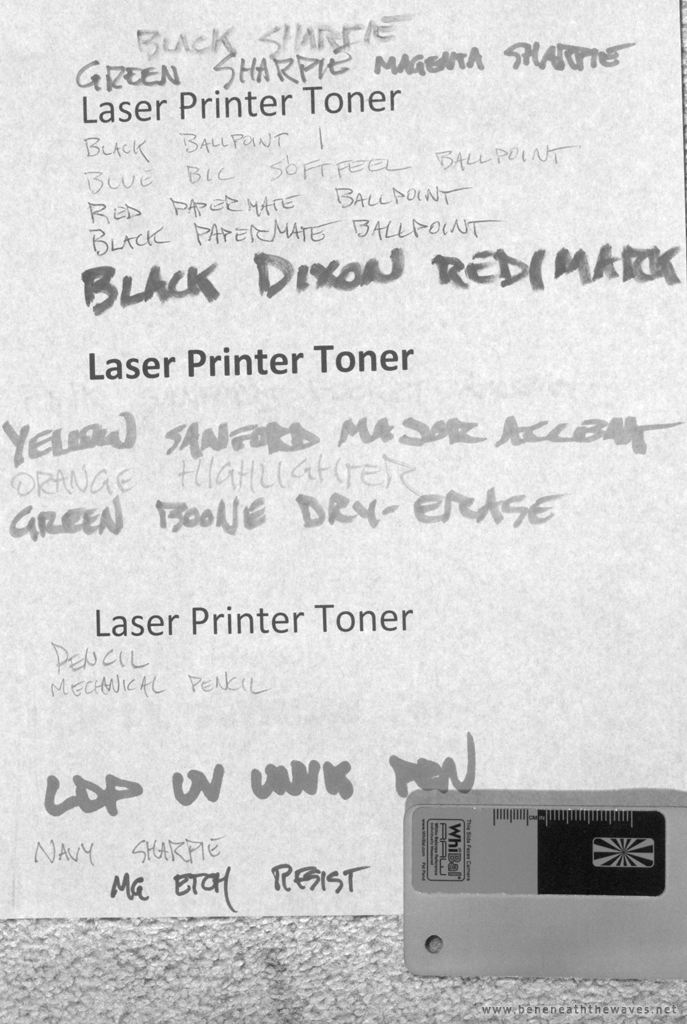 BLACK SHARPIE
GREEN SHARPIE MAGENTA SHARPIE
Laser Printer Toner
BLACK BALLPOINT 1
BLUE BIC SOFTFEEL BALLPOINT
RED PAPERMATE BALLPOINT
BLACK PAPERMATE BALLPOINT
BLACK DIXON REDIMARK
Laser Printer Toner
YELLOW SANFORD MAJOR ACCENT
ORANGE HIGHLIGHTER
GREEN BOONE DRY-ERASE
Laser Printer Toner
PENCIL
MECHANICAL PENCIL
LDP UV INVIS PEN
NAVY SHARPIE
MG ETCH RESIST
This Side Faces Camera
WhiBal
RAW
www.WhiBal.com Pat Pend
CM IN
www.beneneaththewaves.net